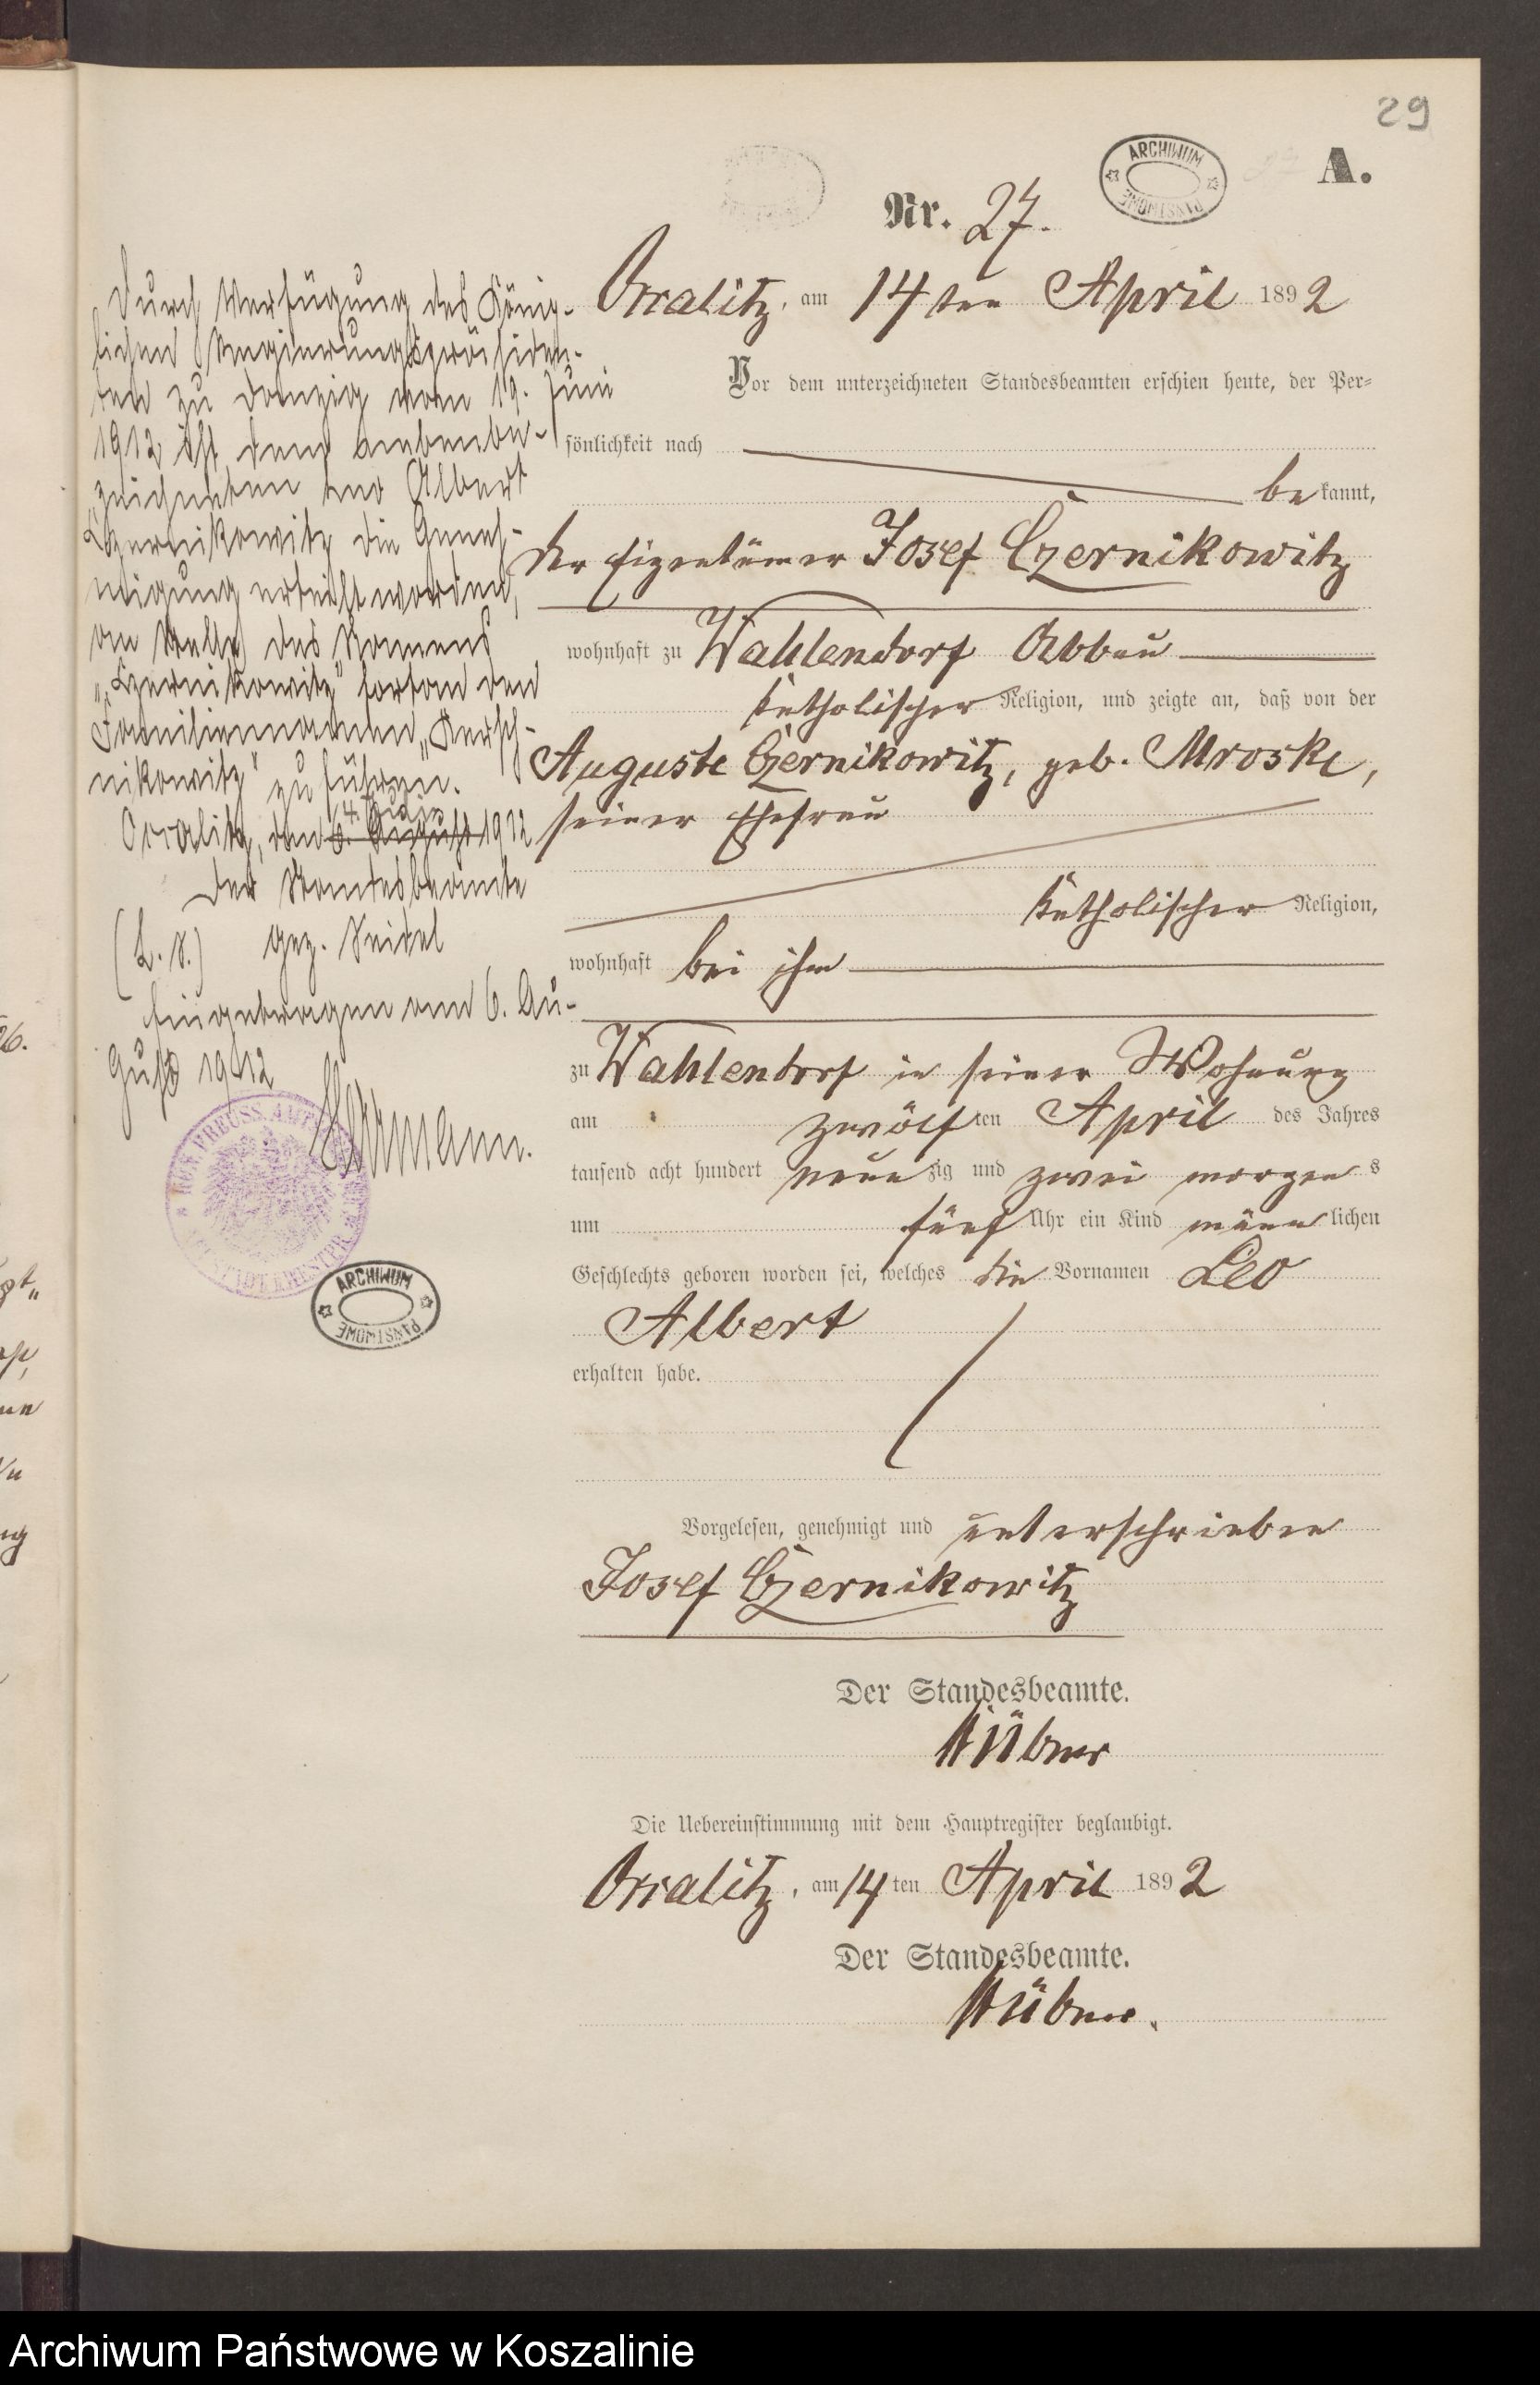 29
A.
ARCHIWUM
PAŃSTWOWE
Nr. 27.
Oßalitz, am 14ten April 1892
Vor dem unterzeichneten Standesbeamten erschien heute, der Per=
sönlichkeit nach
bekannt,
der Eigentümer Josef Czernikowitz
wohnhaft zu Wahlendorf Abbau
katholischer Religion, und zeigte an, daß von der
Auguste Czernikowitz, geb. Mroske,
seiner Ehefrau
katholischer Religion,
wohnhaft bei ihm
zu Wahlendorf in seiner Wohnung
am zwölften April des Jahres
tausend acht hundert neunzig und zwei morgens
um fünf Uhr ein Kind männlichen
Geschlechts geboren worden sei, welches die Vornamen Leo
Albert
erhalten habe.
Vorgelesen, genehmigt und unterschrieben
Josef Czernikowitz
Der Standesbeamte.
Hübner
Die Uebereinstimmung mit dem Hauptregister beglaubigt.
Oßalitz, am 14ten April 1892
Der Standesbeamte.
Hübner.
Durch Verfügung des König-
lichen Regierungspräsiden-
ten zu Danzig vom 19. Juni
1912 ist dem nebenbe-
zeichneten Leo Albert
Czernikowitz die Geneh-
migung erteilt worden,
an Stelle des Namens
„Czernikowitz" fortan den
Familiennamen „Kersch-
nikowitz" zu führen.
4. Juli
Oßalitz, den 6. August 1912
Der Standesbeamte
(L. S.) gez. Seidel
Eingetragen am 6. Au-
gust 1912
ARCHIWUM
PAŃSTWOWE
Archiwum Państwowe w Koszalinie